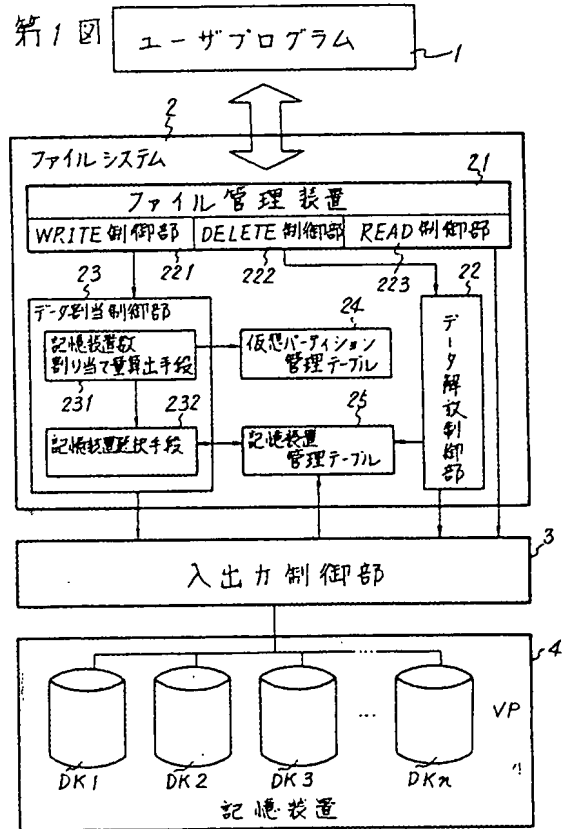 第1図
ユーザプログラム
1
2
ファイルシステム
21
ファイル管理装置
WRITE制御部
DELETE制御部
READ制御部
221
222
223
23
22
データ割当制御部
24
記憶装置数
割り当て量算出手段
仮想パーティション
管理テーブル
データ解放制御部
231
232
25
記憶装置選択手段
記憶装置
管理テーブル
3
入出力制御部
4
...
VP
DK1
DK2
DK3
DKn
記憶装置